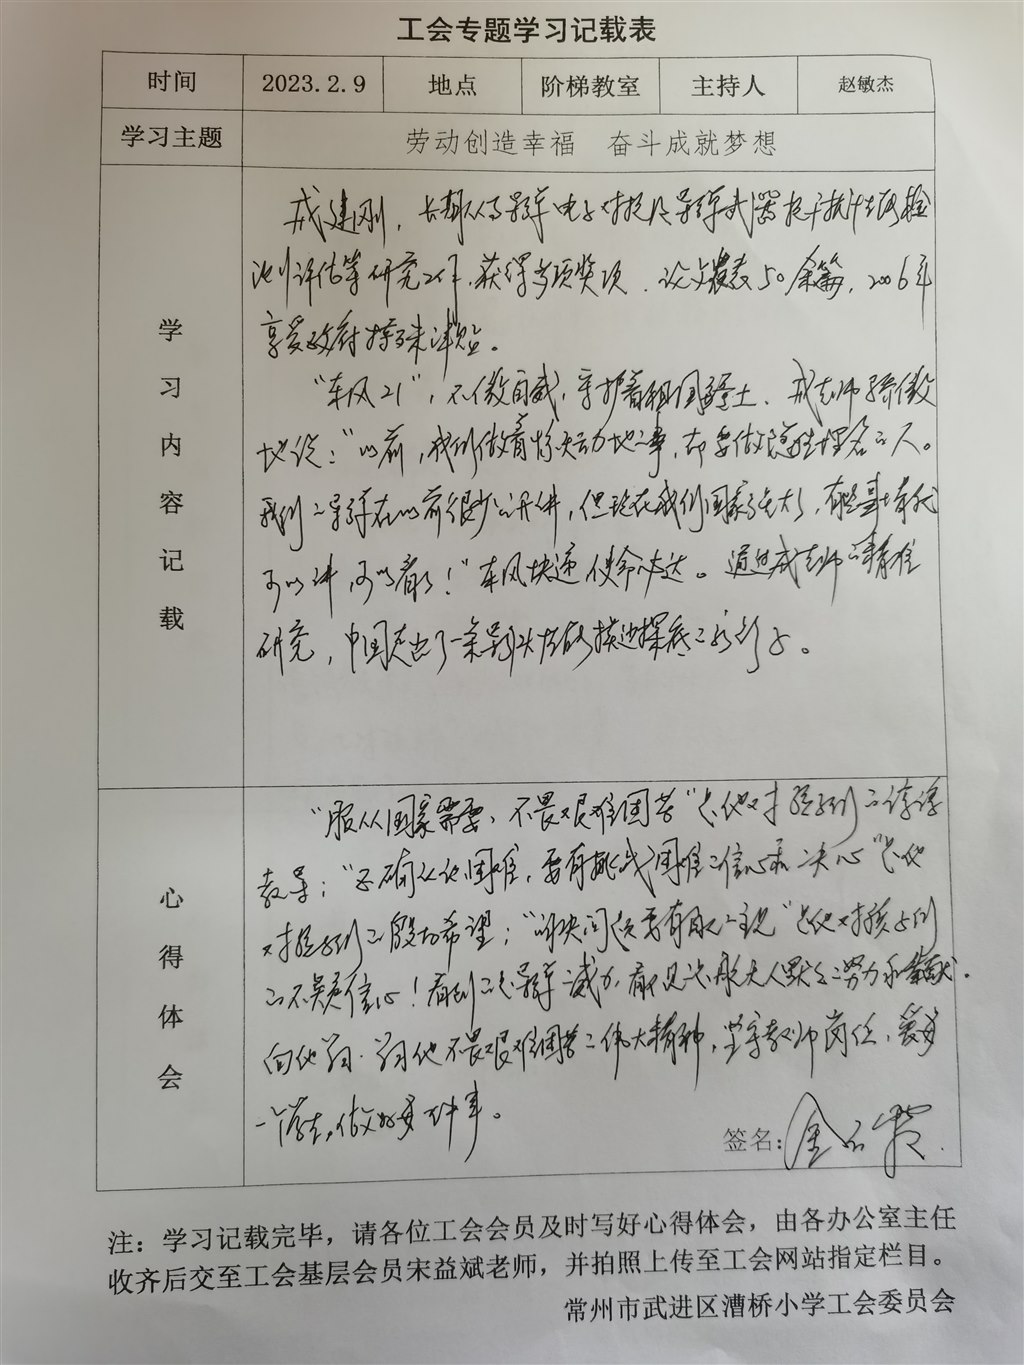 工会专题学习记载表
时间 2023.2.9 地点 阶梯教室 主持人 赵敏杰
学习主题 劳动创造幸福 奋斗成就梦想
学习内容记载
戎建刚，长期从事导弹电子对抗及导弹武器抗干扰性能检
测评估等研究工作，获得多项奖项，论文发表50余篇，2006年
享受政府特殊津贴。
“东风21”，不傲自威，守护着祖国疆土，戎老师骄傲
地说：“以前，我们做着惊天动地的事，却要做隐姓埋名的人。
我们的导弹在以前很少公开讲，但现在我们国家强大了，有些事情我
可以讲，可以看了！”东风快递使命必达。通过戎老师的精准
研究，中国走出了一条导弹
心得体会
“服从国家需要，不畏艰难困苦”是他对孩子们的谆谆
教导；“正确认化困难，要有挑战困难的信心和决心”是他
对孩子们的殷切希望；“解决问题要有”是他对孩子们
的不尽信心！看到的是导弹的威力，航天人默默的努力和奉献。
向他学习，学习他不畏艰难困苦的伟大精神，坚守教师岗位，爱每
一个学生，做好每一件事。
签名：金
注：学习记载完毕，请各位工会会员及时写好心得体会，由各办公室主任
收齐后交至工会基层会员宋益斌老师，并拍照上传至工会网站指定栏目。
常州市武进区漕桥小学工会委员会